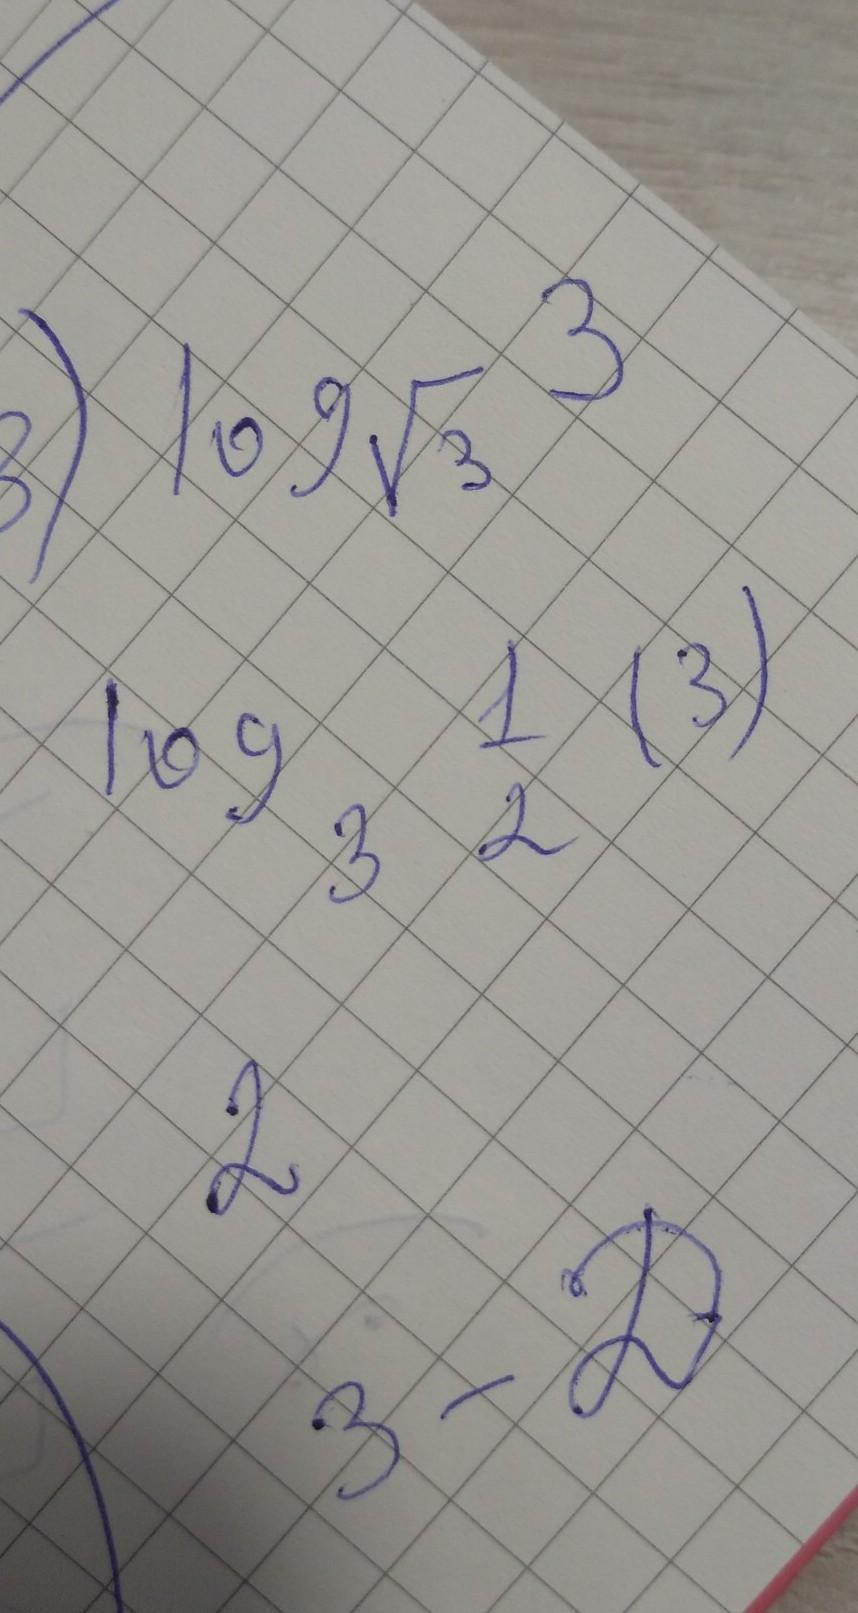 3) log√3 3
log3 1/2 (3)
2
3 - D